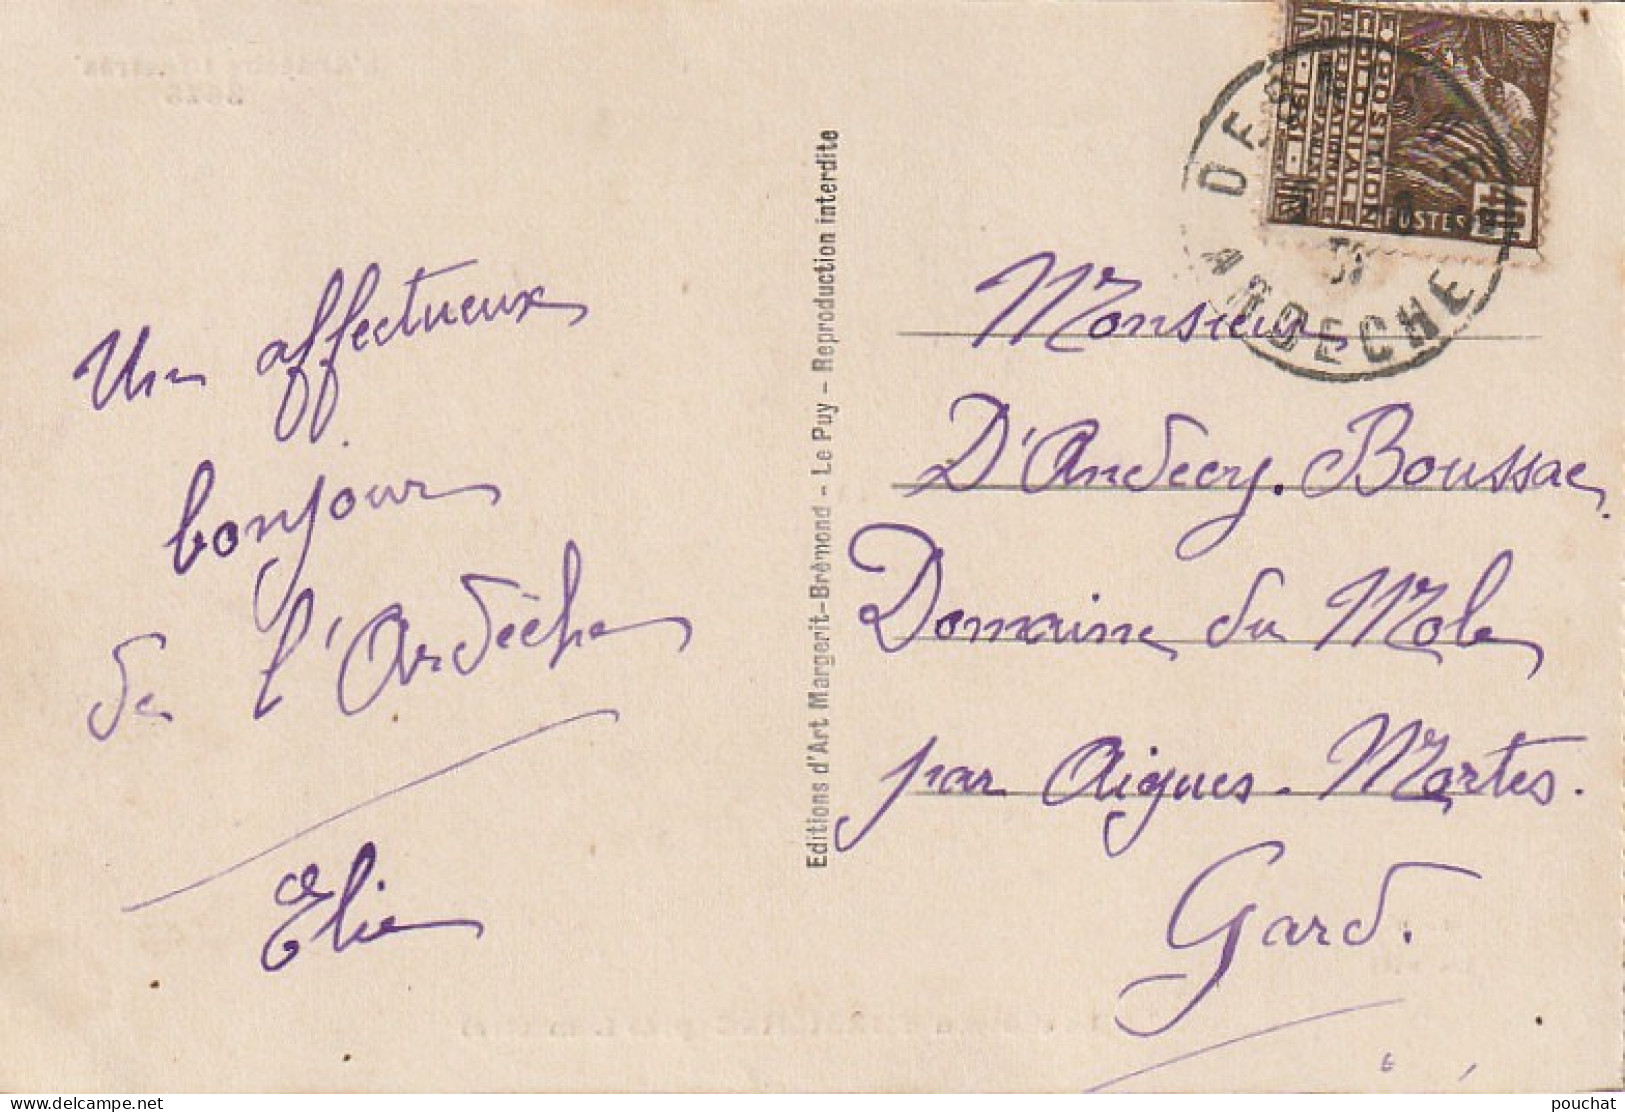 Un affectueux
bonjour
de l'Ardèche
Elie
Editions d'Art Margerit-Brémond - Le Puy - Reproduction interdite
EXPOSITION
COLONIALE
INTERNATIONALE
PARIS 1931
POSTES
ARDECHE
31
Monsieur
D'Andecy. Boussac.
Domaine du Mole
par Aigues-Mortes.
Gard.
pouchat